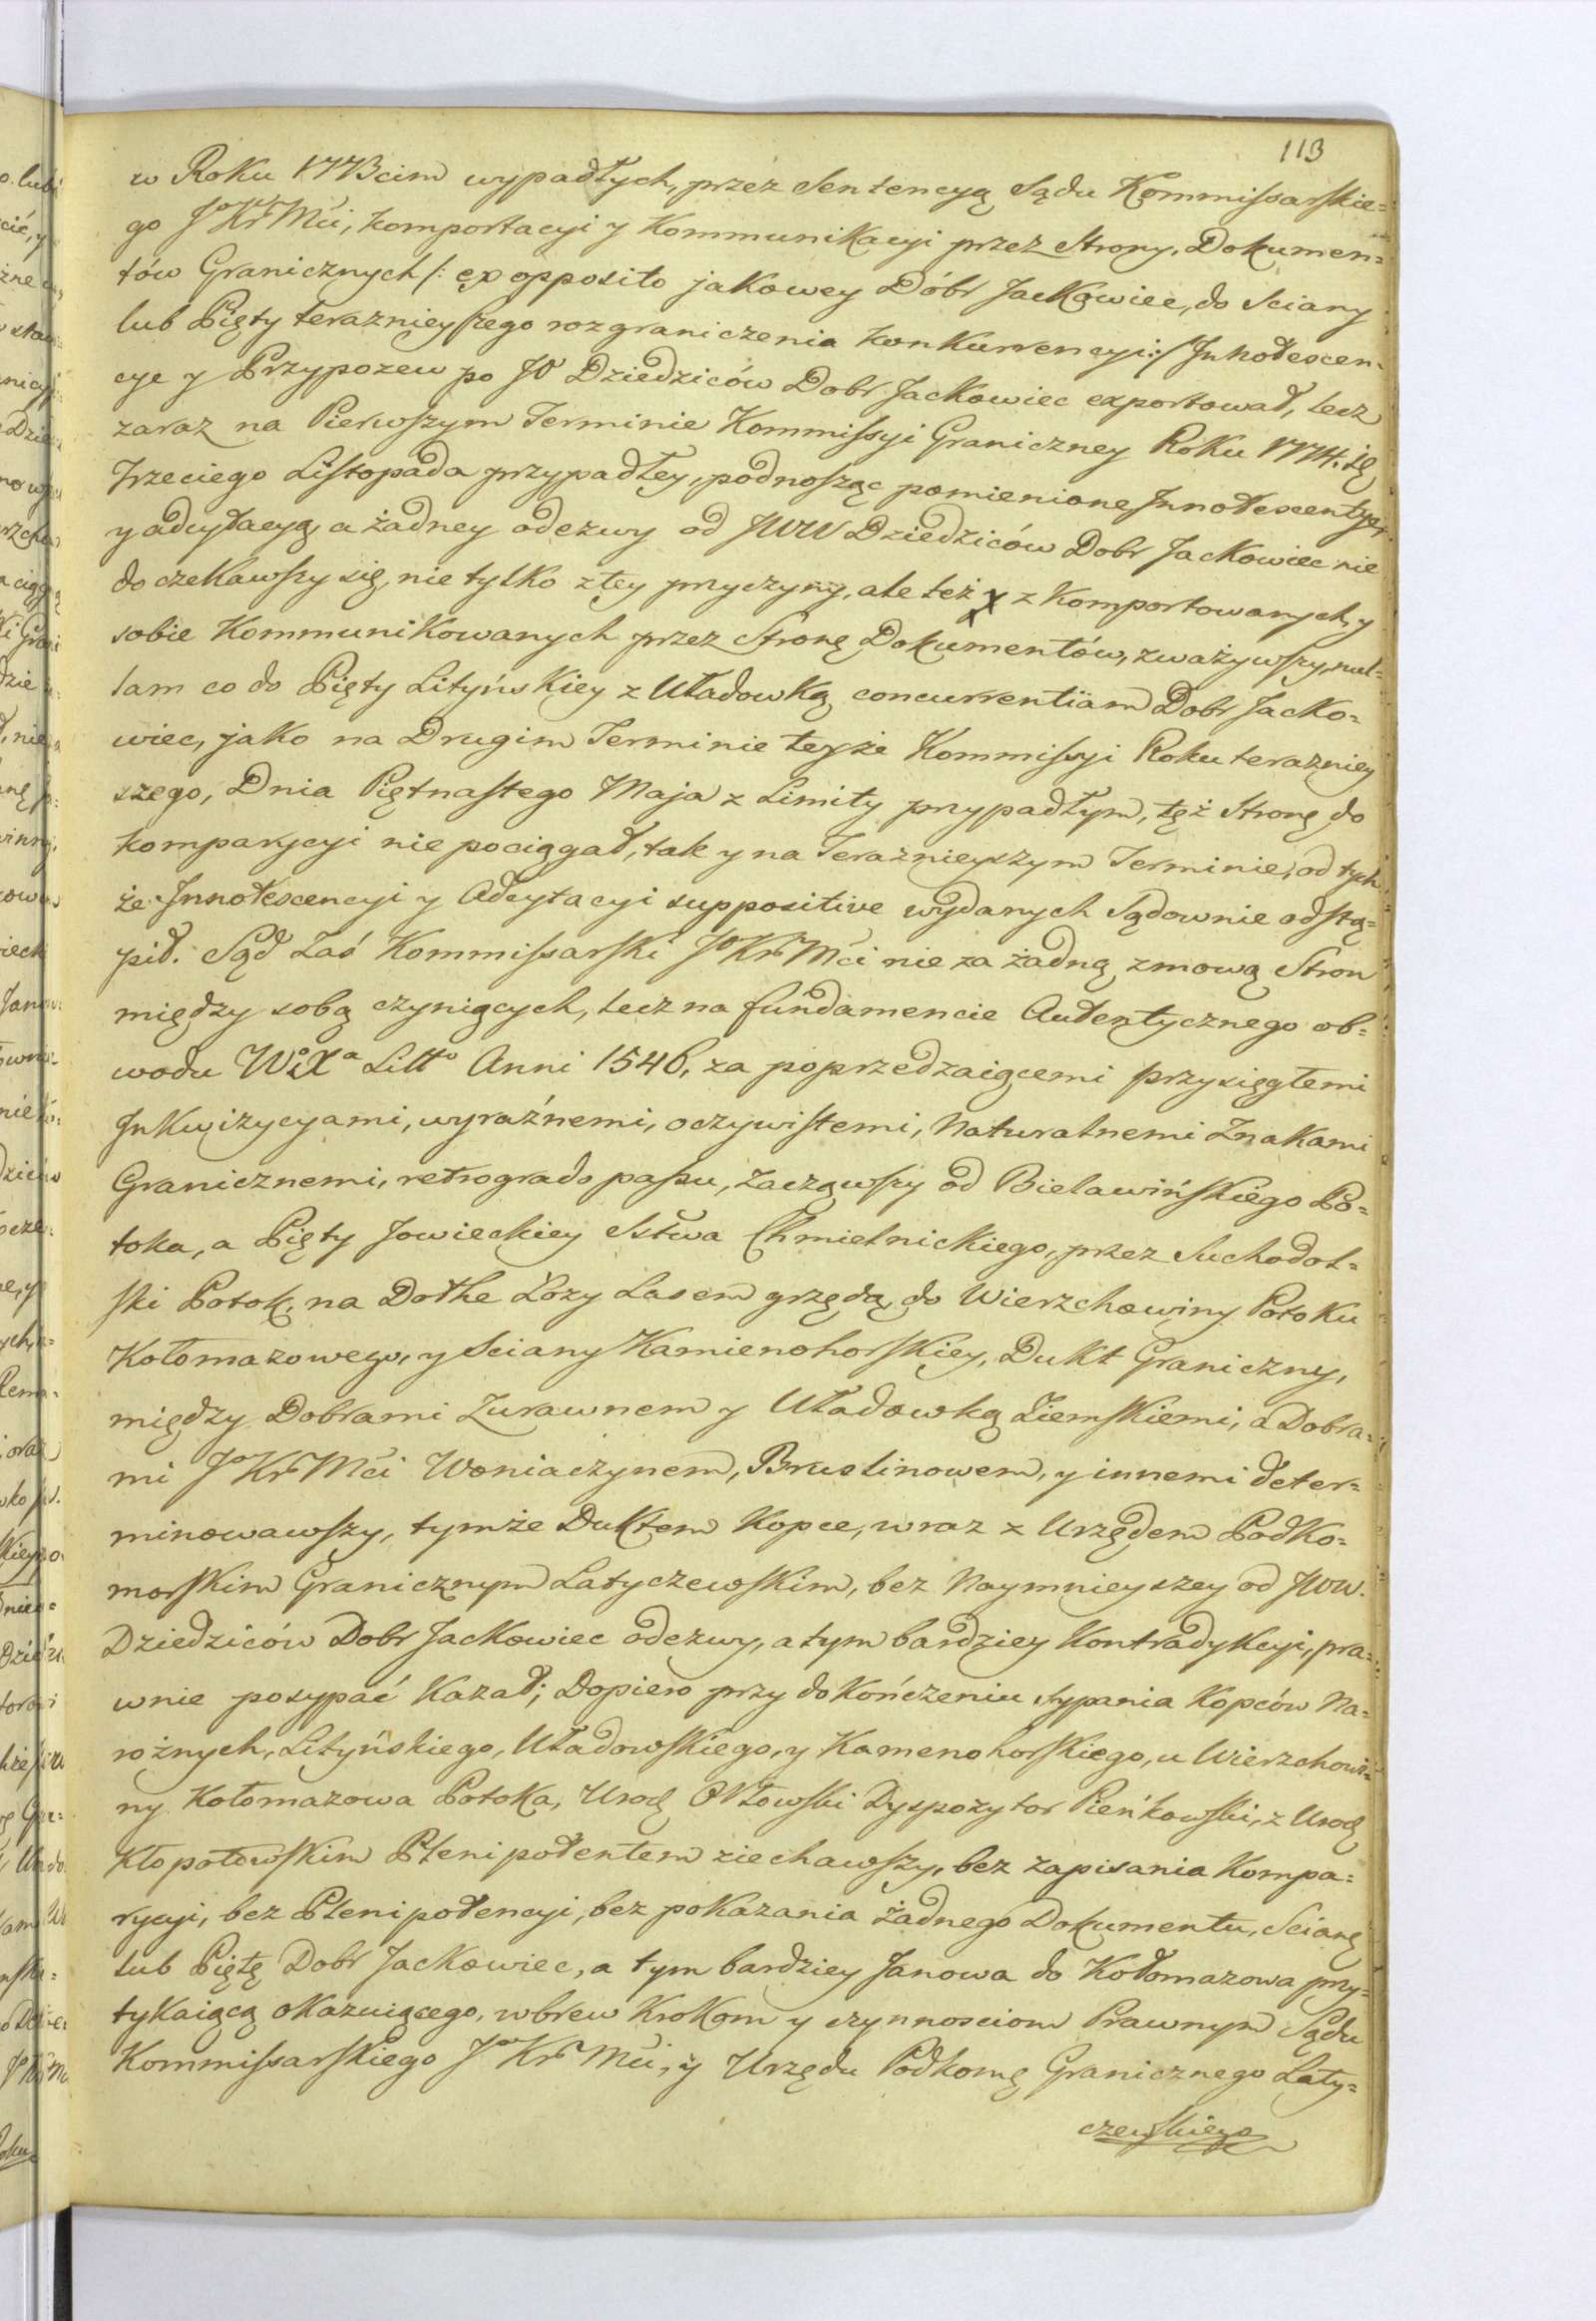 113
w Roku 1773cim wypadłych, przez Sentencyą Sądu Kommissarskie=
go JKr Mci, komportacyi y Kommunikacyi przez Strony, Dokumen=
tów Granicznych /: ex opposito jakowey Dóbr Jackowiec, do Sciany
lub Pięty teraznieyszego rozgraniczenia konkurrencyi:/ Innotescen=
cye y Przypozew po JW Dziedziców Dobr Jackowiec exportował, lecz
zaraz na Pierwszym Terminie Kommissyi Graniczney Roku 1774.
Trzeciego Listopada przypadłey, podnosząc pomienione
y adcytacyą, a żadney odezwy od JWW Dziedziców Dobr Jackowiec nie
doczekawszy się, nie tylko z tey przyczyny, ale też y z Komportowanych, y
sobie Kommunikowanych przez Stronę Dokumentów, zważywszy, nul=
lam co do Pięty Lityńskiey z Uładowką concurrentiam Dobr Jacko=
wiec, jako na Drugim Terminie teyże Kommissyi Roku teraźniey
szego, Dnia Piętnastego Maja z Limity przypadłym, tęż Stronę do
komparycyi nie pociągał, tak y na Teraznieyszym Terminie, od tych
że Innotescencyi y Adcytacyi suppositive wydanych Sądownie odstą=
pił. Sąd Zaś Kommissarski JKr Mci nie za żadną zmową Stron
między sobą czyniących, lecz na fundamencie Autentycznego ob=
wodu Lit<sup>o</sup> Anni 1546, za poprzedzaiącemi przysięgłemi
Inkwizycyami, wyraźnemi, oczywistemi, Naturalnemi Znakami
Granicznemi, retrogrado passu, Zacząwszy od Bielawińskiego Po=
toka, a Pięty Jowieckiey Sstwa Chmielnickiego, przez Suchodol=
ski Potok, na Dołhe Łozy Lasem grzędą do Wierzchowiny Potoku
Kołomazowego, y Sciany Kamienohorskiey, Dukt Graniczny,
między Dobrami Zurawnem y Uładowką Ziemskiemi, a Dobra=
mi JKr Mci Woniaczynem, Bruslinowem, y innemi deter=
minowawszy, tymże Duktem Kopce, wraz z Urzędem Podko=
morskim Granicznym Latyczewskim, bez Naymnieyszey od JWW.
Dziedziców Dobr Jackowiec odezwy, a tym bardziey Kontradykcyi, pra=
wnie posypać Kazał; Dopiero przy dokończeniu sypania Kopców Na=
rożnych, Lityńskiego, Uładowskiego, y Kamenohorskiego, u Wierzchowi=
ny Kołomazowa Potoka, Urod Orłowski Dyspozytor Pieńkowski, z Urod
Kłopotowskim Plenipotentem ziechawszy, bez zapisania Kompa=
rycyi, bez Plenipotencyi, bez pokazania żadnego Dokumentu, Scianę
lub Piętę Dobr Jackowiec, a tym bardziey Janowa do Kołomazowa przy=
tykaiącą okazuiącego, wbrew Krokom y czynnosciom Prawnym Sądu
Kommissarskiego JKr Mci, y Urzędu Podkomę Granicznego Laty=
czewskiego